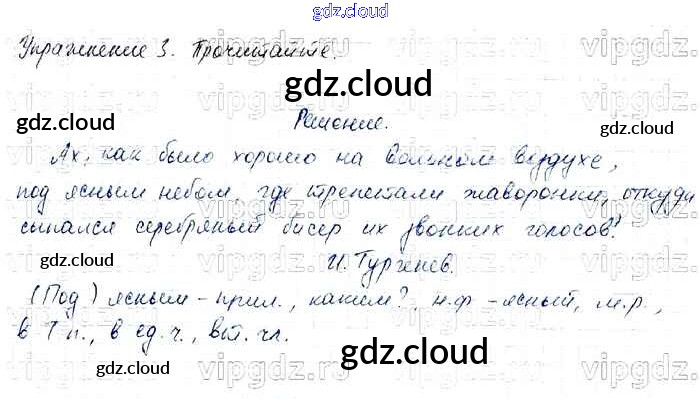 gdz.cloud
Упражнение 3. Прочитайте.
gdz.cloud
gdz.cloud
Решение.
gdz.cloud
Ах, как было хорошо на вольном воздухе,
под ясным небом, где трепетали жаворонки, откуда
gdz.cloud
сыпался серебряный бисер их звонких голосов!
gdz.cloud
И. Тургенев.
gdz.cloud
(Под) ясным - прил., каким?, н.ф - ясный, м.р.,
в Т п., в ед.ч., вт. чл.
gdz.cloud
gdz.cloud